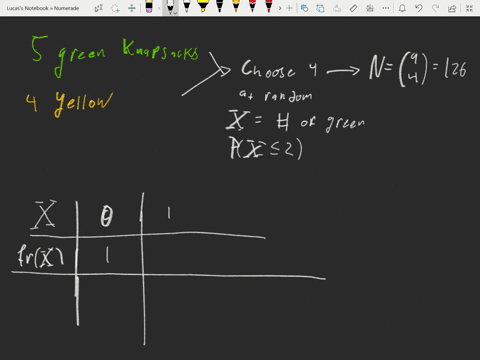 Lucas's Notebook » Numerade
5 green knapsacks
4 yellow
Choose 4 → N = (9 4) = 126
at random
X = # of green
P(X ≤ 2)
X 0 1
fr(X) 1